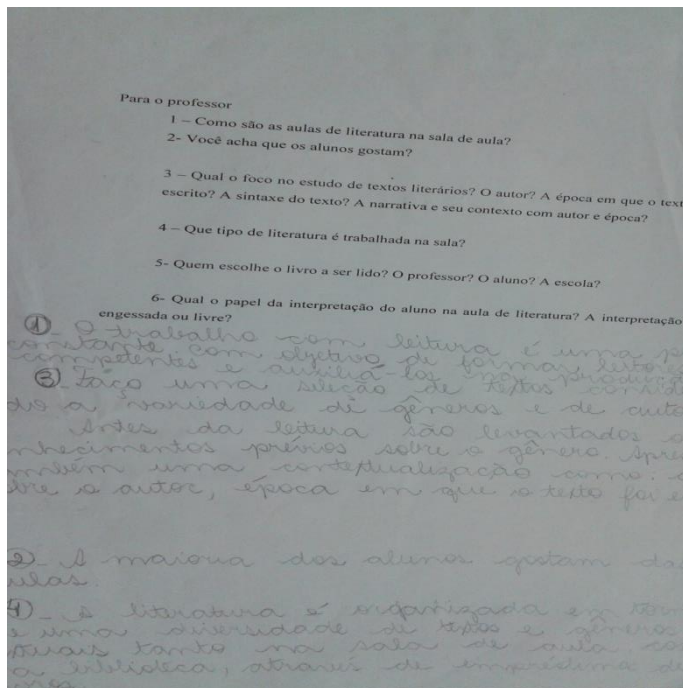 Para o professor
1 – Como são as aulas de literatura na sala de aula?
2- Você acha que os alunos gostam?
3 – Qual o foco no estudo de textos literários? O autor? A época em que o tex
escrito? A sintaxe do texto? A narrativa e seu contexto com autor e época?
4 – Que tipo de literatura é trabalhada na sala?
5- Quem escolhe o livro a ser lido? O professor? O aluno? A escola?
6- Qual o papel da interpretação do aluno na aula de literatura? A interpretação
engessada ou livre?
1 - O trabalho com leitura é uma p
constante com objetivo de formar leitores
competentes e auxiliá-los na produção
3 - Faço uma seleção de textos consid
do a variedade de gêneros e de auto
Antes da leitura são levantados o
nhecimentos prévios sobre o gênero. Apre
mbém uma contextualização como:
bre o autor, época em que o texto foi e
2 - A maioria dos alunos gostam da
ulas.
4 - A literatura é organizada em form
e uma diversidade de textos e gêneros
tuais tanto na sala de aula co
a biblioteca, através de empréstimo de